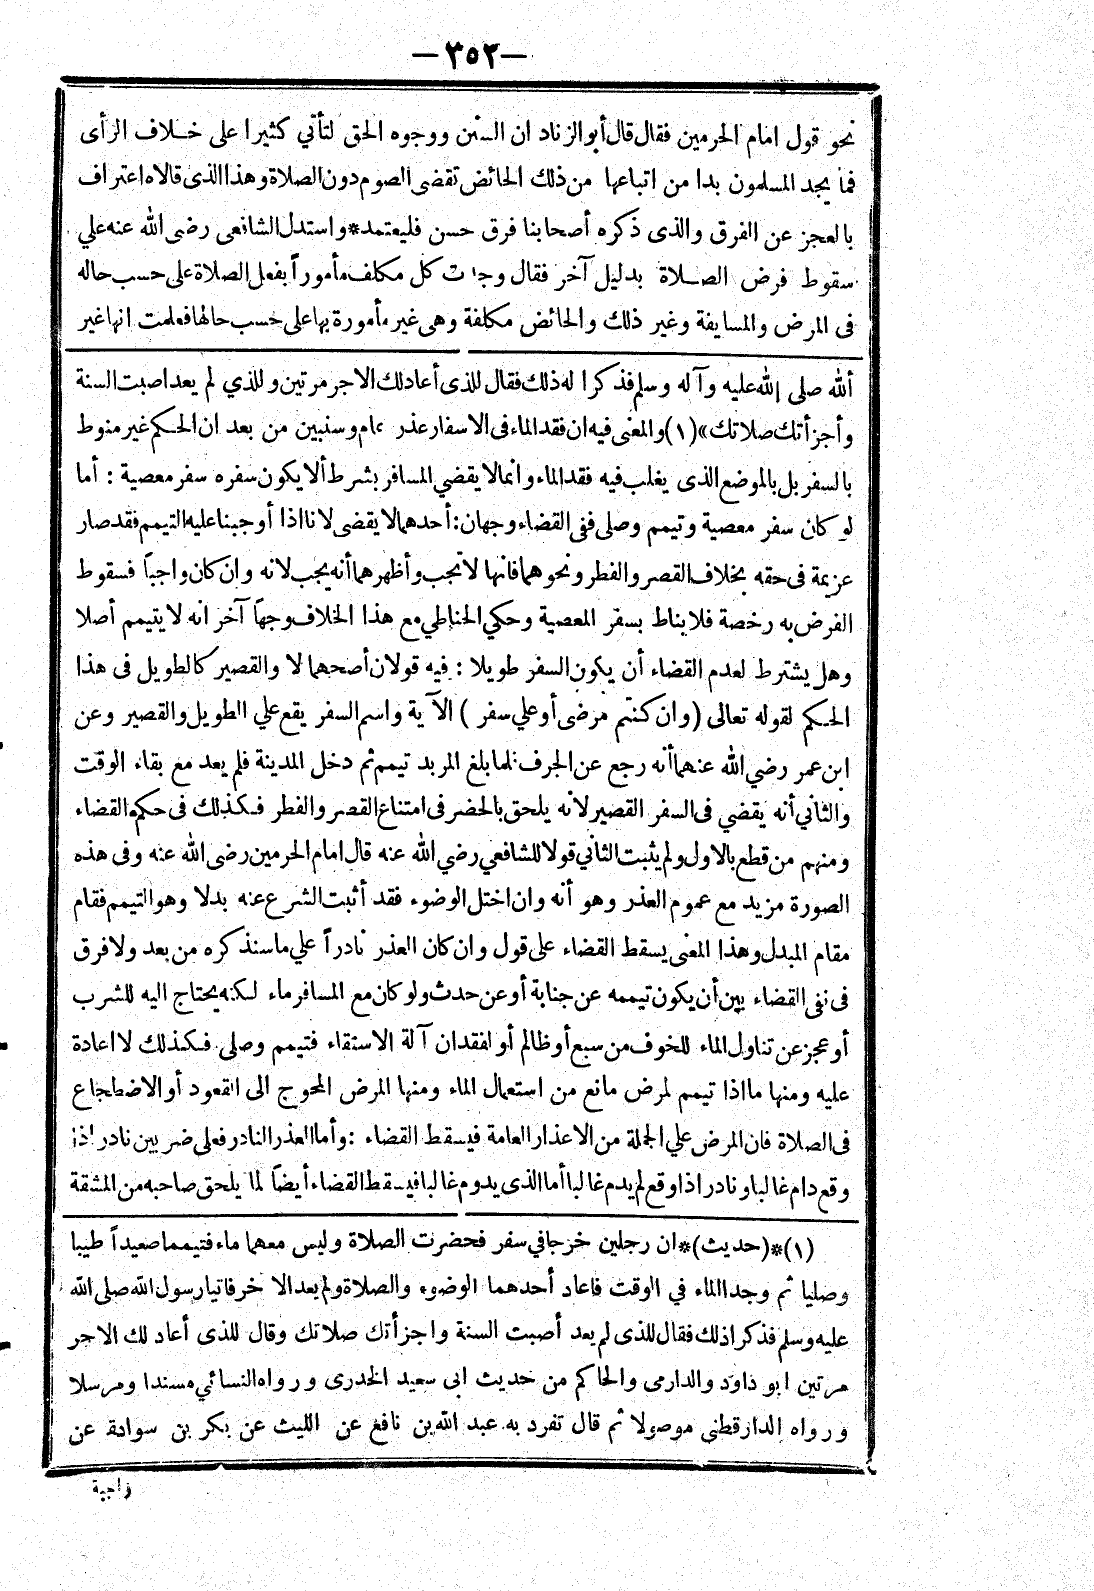 —٣٥٢—
نحو قول امام الحرمين فقال قال أبو الزناد ان السنن ووجوه الحق لتأتي كثيرا على خلاف الرأى
فما يجد المسلمون بدا من اتباعها من ذلك الحائض تقضى الصوم دون الصلاة وهذا الذى قالاه اعتراف
بالعجز عن الفرق والذى ذكره أصحابنا فرق حسن فليعتمد * واستدل الشافعى رضى الله عنه علي
سقوط فرض الصلاة بدليل آخر فقال وجدت كل مكلف مأموراً بفعل الصلاة على حسب حاله
فى المرض والمسايفة وغير ذلك والحائض مكلفة وهى غير مأمورة بها على حسب حالها فعلمت انها غير
ألله صلى الله عليه وآله وسلم فذكرا له ذلك فقال للذى أعاد لك الاجر مرتين وللذي لم يعد اصبت السنة
وأجزأتك صلاتك» (١) والمعنى فيه ان فقد الماء فى الاسفار عذر عام وسنبين من بعد ان الحكم غير منوط
بالسفر بل بالموضع الذى يغلب فيه فقد الماء وانما لا يقضي المسافر بشرط ألا يكون سفره سفر معصية : أما
لو كان سفر معصية وتيمم وصلى ففى القضاء وجهان : أحدهما لا يقضى لانا اذا أوجبنا عليه التيمم فقد صار
عزيمة فى حقه بخلاف القصر والفطر ونحوهما فانها لا تجب وأظهرهما أنه يجب لانه وان كان واجباً فسقوط
الفرض به رخصة فلا يناط بسفر المعصية وحكي الحناطي مع هذا الخلاف وجهاً آخر انه لا يتيمم أصلا
وهل يشترط لعدم القضاء أن يكون السفر طويلا : فيه قولان أصحهما لا والقصير كالطويل فى هذا
الحكم لقوله تعالى (وان كنتم مرضى أو علي سفر ) الآية واسم السفر يقع علي الطويل والقصير وعن
ابن عمر رضي الله عنهما أنه رجع عن الجرف فلما بلغ المربد تيمم ثم دخل المدينة فلم يعد مع بقاء الوقت
والثاني أنه يقضي فى السفر القصير لانه يلحق بالحضر فى امتناع القصر والفطر فكذلك فى حكم القضاء
ومنهم من قطع بالاول ولم يثبت الثاني قولا للشافعي رضي الله عنه قال امام الحرمين رضى الله عنه وفى هذه
الصورة مزيد مع عموم العذر وهو أنه وان اختل الوضوء فقد أثبت الشرع عنه بدلا وهو التيمم فقام
مقام المبدل وهذا المعنى يسقط القضاء على قول وان كان العذر نادراً علي ما سنذكره من بعد ولا فرق
فى نفى القضاء بين أن يكون تيممه عن جنابة أو عن حدث ولو كان مع المسافر ماء لكنه يحتاج اليه للشرب
أو عجز عن تناول الماء للخوف من سبع أو ظالم أو لفقدان آلة الاستقاء فتيمم وصلى فكذلك لا اعادة
عليه ومنها ما اذا تيمم لمرض مانع من استعمال الماء ومنها المرض المحوج الى القعود أو الاضطجاع
فى الصلاة فان المرض علي الجملة من الاعذار العامة فيسقط القضاء : وأما العذر النادر فعلى ضربين نادر اذا
وقع دام غالبا ونادر اذا وقع لم يدم غالبا أما الذى يدوم غالبا فيسقط القضاء أيضاً لما يلحق صاحبه من المشقة
(١) *(حديث)* ان رجلين خرجا في سفر فحضرت الصلاة وليس معهما ماء فتيمما صعيداً طيبا
وصليا ثم وجدا الماء في الوقت فاعاد أحدهما الوضوء والصلاة ولم يعد الآخر فاتيا رسول الله صلى الله
عليه وسلم فذكرا ذلك فقال للذى لم يعد أصبت السنة واجزأتك صلاتك وقال للذى أعاد لك الاجر
مرتين ابو داود والدارمى والحاكم من حديث ابى سعيد الخدرى ورواه النسائي مسندا ومرسلا
ورواه الدارقطنى موصولا ثم قال تفرد به عبد الله بن نافع عن الليث عن بكر بن سوادة عن